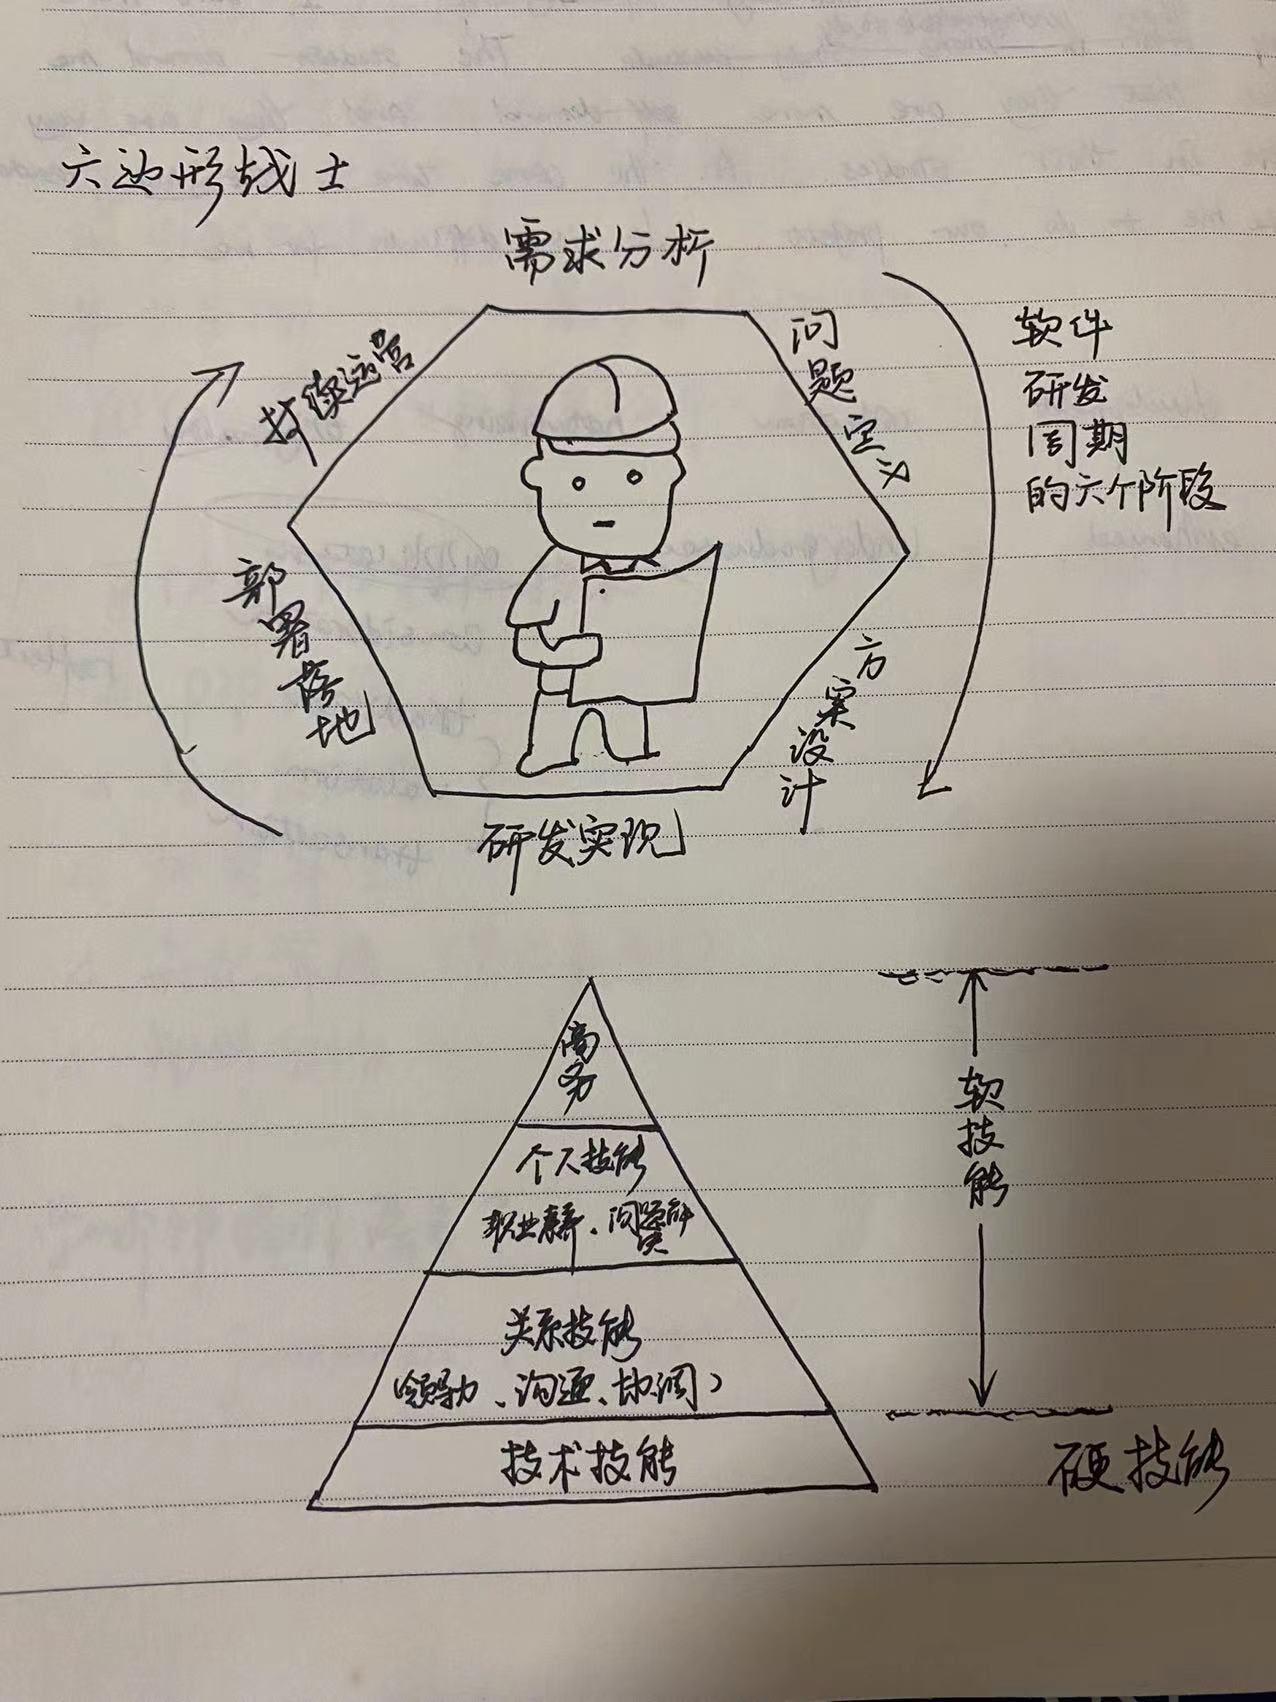 六边形战士
需求分析
问题定义
方案设计
研发实现
部署落地
持续运营
软件
研发
周期
的六个阶段
商务
个人技能
职业素养、问题解
关系技能
(领导力、沟通、协调)
技术技能
软技能
硬技能